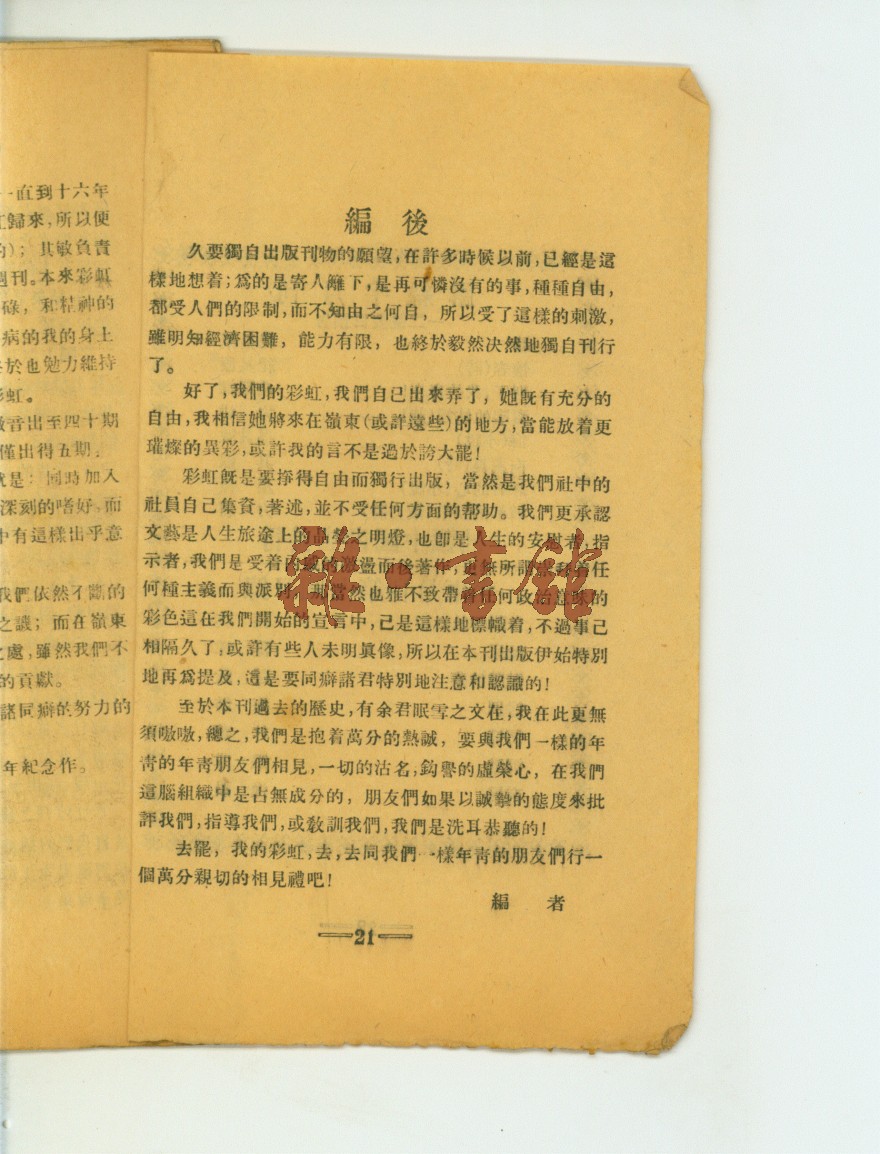 一直到十六年
歸來，所以便
的）；其敏負責
週刊。本來彩虹
碌，和精神的
病的我的身上
終於也勉力維持
彩虹。
微音出至四十期
僅出得五期。
就是：同時加入
深刻的嗜好，而
中有這樣出乎意
我們依然不斷的
之議；而在嶺東
之處，雖然我們不
的貢獻。
諸同癖的努力的
年紀念作。
編後
久要獨自出版刊物的願望，在許多時候以前，已經是這
樣地想着；爲的是寄人籬下，是再可憐沒有的事，種種自由，
都受人們的限制，而不知由之何自，所以受了這樣的刺激，
雖明知經濟困難，能力有限，也終於毅然决然地獨自刊行
了。
好了，我們的彩虹，我們自己出來弄了，她既有充分的
自由，我相信她將來在嶺東（或許遠些）的地方，當能放着更
璀燦的異彩，或許我的言不是過於誇大罷！
彩虹既是要掙得自由而獨行出版，當然是我們社中的
社員自己集資，著述，並不受任何方面的帮助。我們更承認
文藝是人生旅途上的晶瑩之明燈，也卽是人生的安慰者，指
示者，我們是受着內域的激盪而後著作，更無所謂
任
何種主義而與派別，那當然也雅不致帶着任何政治意味的
彩色這在我們開始的宣言中，已是這樣地標幟着，不過事已
相隔久了，或許有些人未明眞像，所以在本刊出版伊始特別
地再爲提及，這是要同癖諸君特別地注意和認識的！
至於本刊過去的歷史，有余君眠雪之文在，我在此更無
須嗷嗷，總之，我們是抱着萬分的熱誠，要與我們一樣的年
靑的年靑朋友們相見，一切的沽名，鈎譽的虛榮心，在我們
這腦組織中是占無成分的，朋友們如果以誠摯的態度來批
評我們，指導我們，或敎訓我們，我們是洗耳恭聽的！
去罷，我的彩虹，去，去同我們一樣年靑的朋友們行一
個萬分親切的相見禮吧！
編 者
21
雜·書館